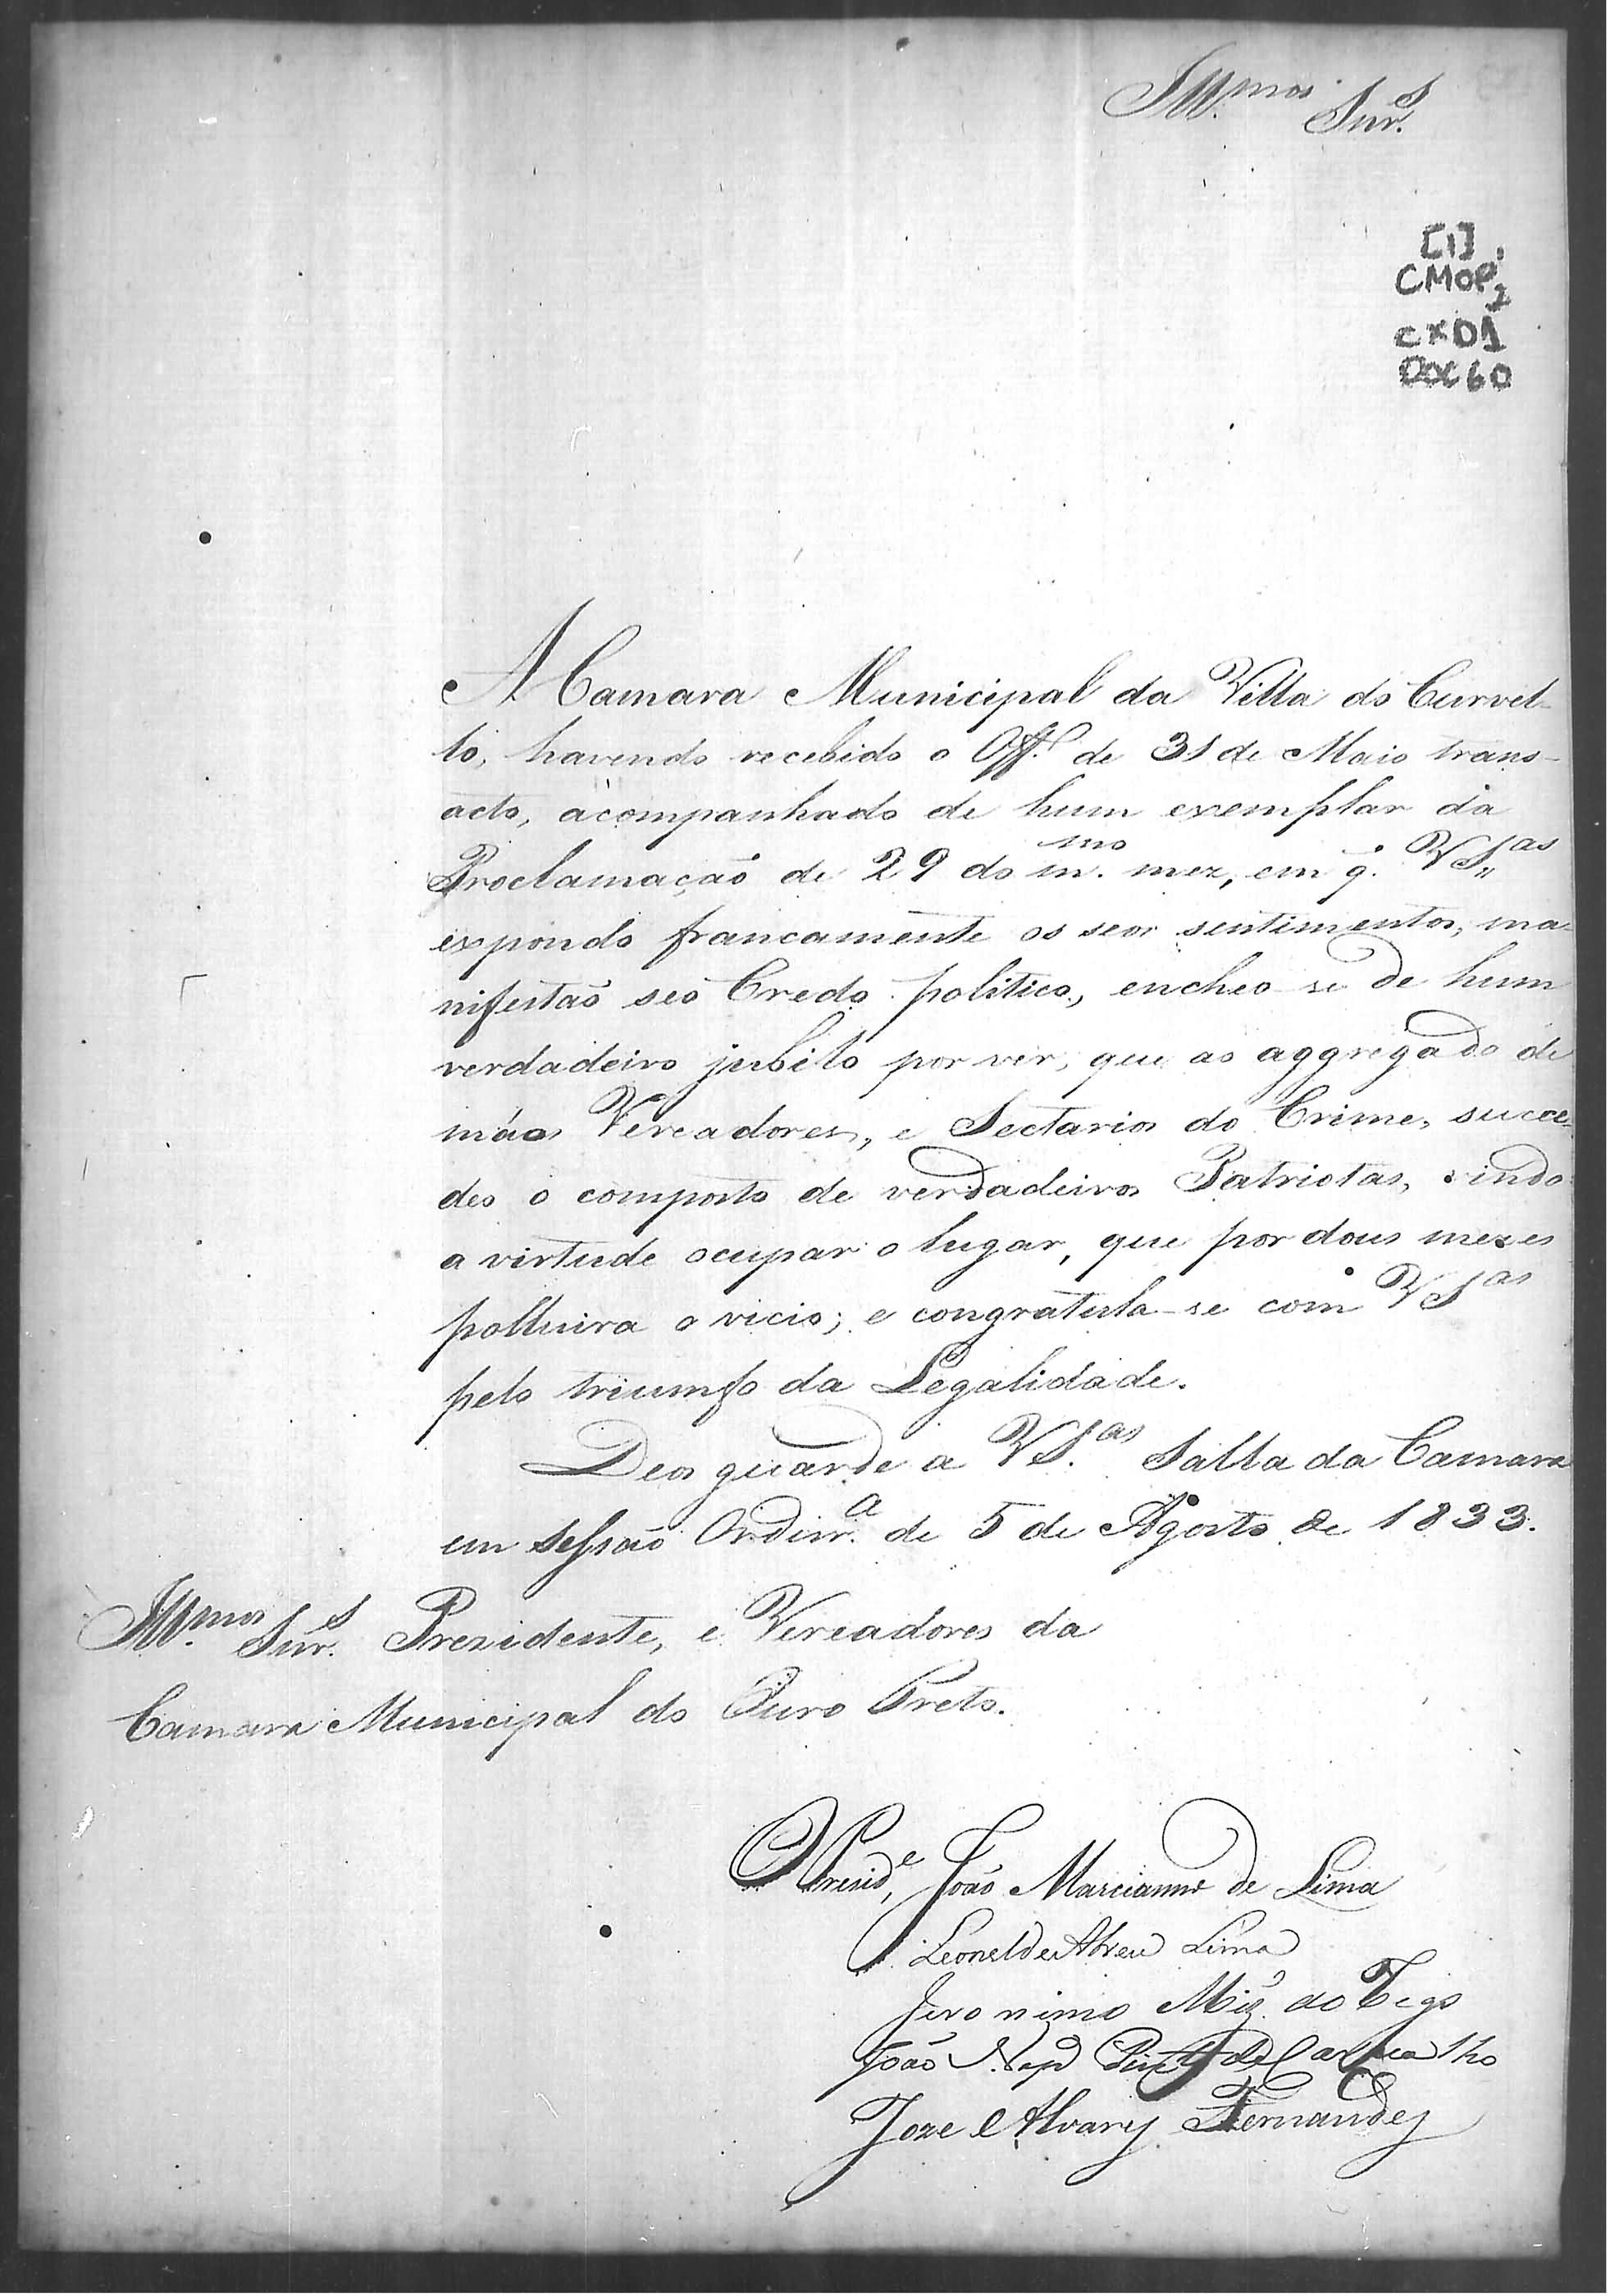 Ill.mos Snr.s
[1]
CMOP1
CX01
DOC60
A Camara Municipal da Villa do Curvel-
lo, havendo recebido o Off.o de 31 de Maio trans-
acto, acompanhado de hum exemplar da
Proclamação de 29 do m.mo mez, em q. VS.as
expondo francamente os seos sentimentos, ma-
nifestaõ seo Credo politico, encheo-se de hum
verdadeiro jubilo por ver, que ao aggregado de
máos Vereadores, e Sectarios do Crime, succe-
deo o composto de verdadeiros Patriotas, vindo
a virtude ocupar o lugar, que por dous mezes
polluira o vicio; e congratula-se com VS.as
pelo triumfo da Legalidade.
Deos guarde a VS.as Salla da Camara
em Sessaõ Ordin.a de 5 de Agosto de 1833.
Ill.mos Snr.s Prezidente, e Vereadores da
Camara Municipal do Ouro Preto.
O Presid.e João Marcianno de Lima
Leonel de Abreu Lima
Jeronimo Miz do Rego
João Nep. de Carvalho
Joze Alvarez Fernandez